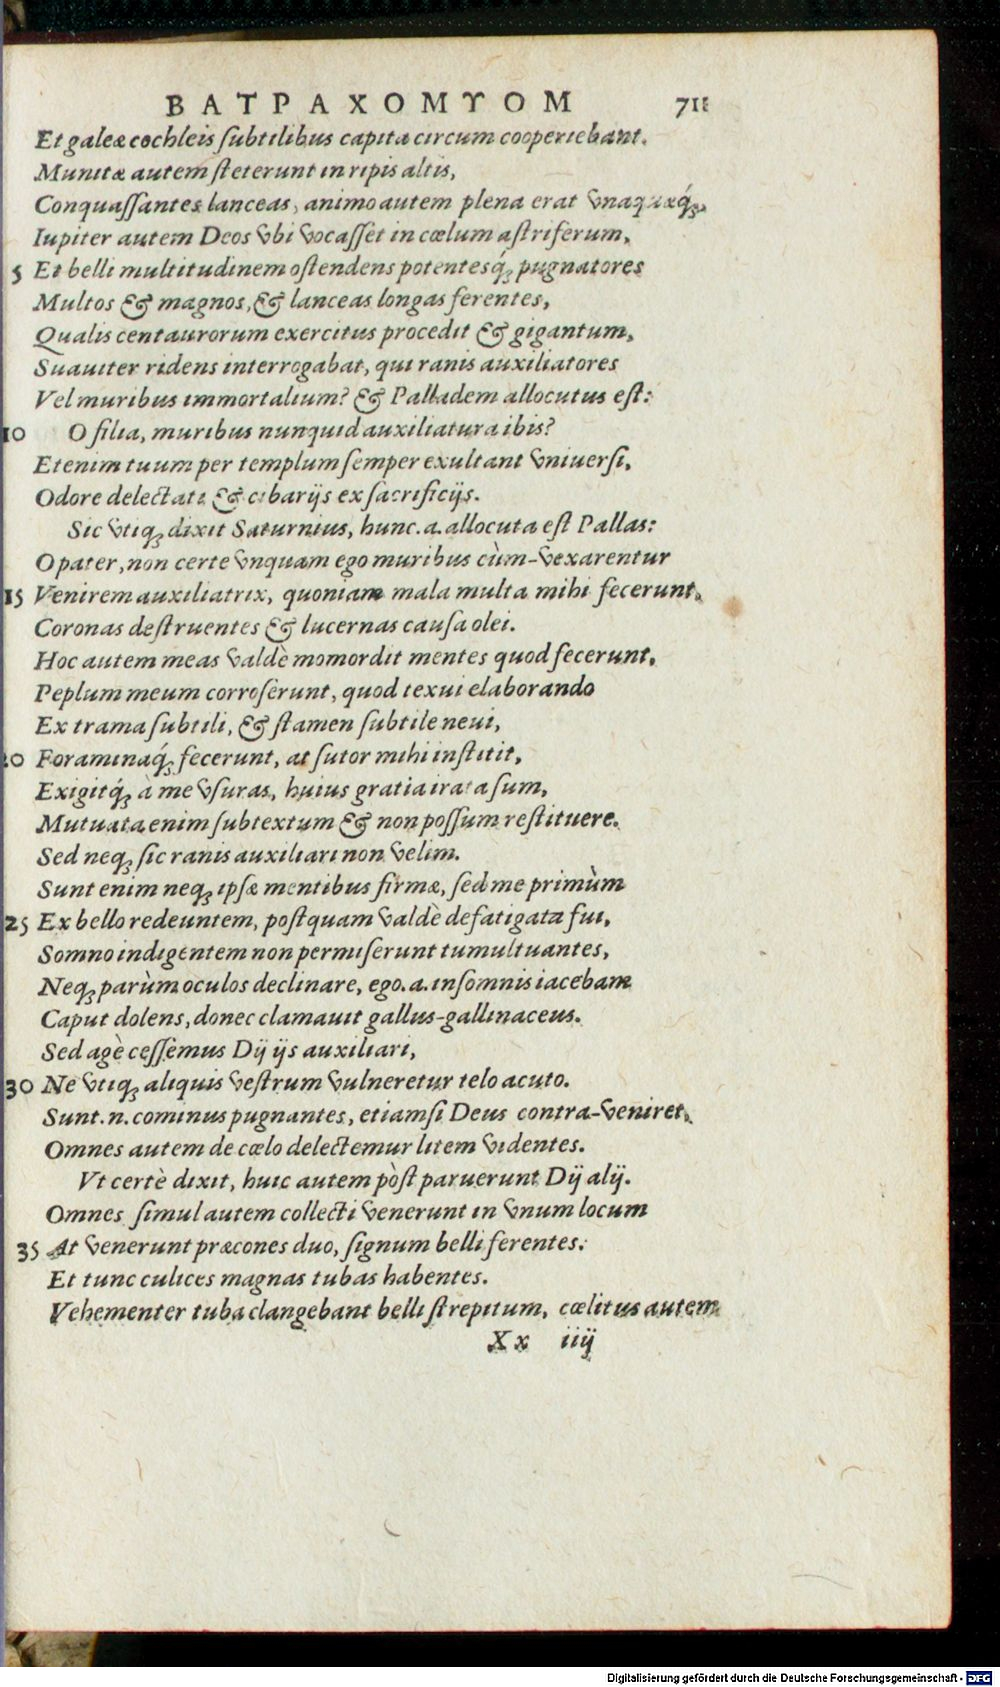 ΒΑΤΡΑΧΟΜΥΟΜ 711
Et galeæ cochleis ſubtilibus capita circum cooperiebant.
Munitæ autem ſteterunt in ripis altis,
Conquaſſantes lanceas, animo autem plena erat vnaquæq́;.
Iupiter autem Deos vbi vocaſſet in cœlum aſtriferum,
5 Et belli multitudinem oſtendens potentesq́; pugnatores
Multos & magnos, & lanceas longas ferentes,
Qualis centaurorum exercitus procedit & gigantum,
Suauiter ridens interrogabat, qui ranis auxiliatores
Vel muribus immortalium? & Palladem allocutus eſt:
10 O filia, muribus nunquid auxiliatura ibis?
Etenim tuum per templum ſemper exultant vniuerſi,
Odore delectati & cibarijs ex ſacrificijs.
Sic vtiq; dixit Saturnius, hunc .a. allocuta eſt Pallas:
O pater, non certe vnquam ego muribus cùm-vexarentur
15 Venirem auxiliatrix, quoniam mala multa mihi fecerunt,
Coronas deſtruentes & lucernas cauſa olei.
Hoc autem meas valdè momordit mentes quod fecerunt,
Peplum meum corroſerunt, quod texui elaborando
Ex trama ſubtili, & ſtamen ſubtile neui,
20 Foraminaq́; fecerunt, at ſutor mihi inſtitit,
Exigitq́; à me vſuras, huius gratia irata ſum,
Mutuata enim ſubtextum & non poſſum reſtituere.
Sed neq; ſic ranis auxiliari non velim.
Sunt enim neq; ipſæ mentibus firmæ, ſed me primùm
25 Ex bello redeuntem, poſtquam valdè defatigata fui,
Somno indigentem non permiſerunt tumultuantes,
Neq; parùm oculos declinare, ego .a. inſomnis iacebam
Caput dolens, donec clamauit gallus-gallinaceus.
Sed agè ceſſemus Dij ijs auxiliari,
30 Ne vtiq; aliquis veſtrum vulneretur telo acuto.
Sunt .n. cominus pugnantes, etiamſi Deus contra-veniret,
Omnes autem de cœlo delectemur litem videntes.
Vt certè dixit, huic autem pòſt paruerunt Dij alij.
Omnes ſimul autem collecti venerunt in vnum locum
35 At venerunt præcones duo, ſignum belli ferentes:
Et tunc culices magnas tubas habentes.
Vehementer tuba clangebant belli ſtrepitum, cœlitus autem
Xx iiij
Digitalisierung gefördert durch die Deutsche Forschungsgemeinschaft - DFG